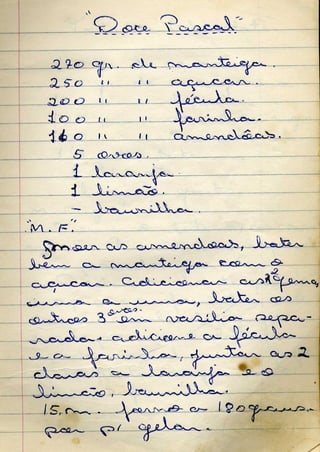 "Doce Pascal"
270 gr. de manteiga.
250 " " açucar.
200 " " fécula.
100 " " farinha.
160 " " amendôas.
5 ovos.
1 laranja.
1 limão.
- baunilha.
"M. F."
moer as amendoas, bater
bem a manteiga com o
açucar. Adicionar as 2 gemas,
uma a uma, bater os
outros 3 ovos em vasilia sepa-
rada, adicione a fécula
e a farinha, juntar as 2
claras a laranja e o
limão, baunilha.
15, m. forno a 180 graus.
por p/ gelar.